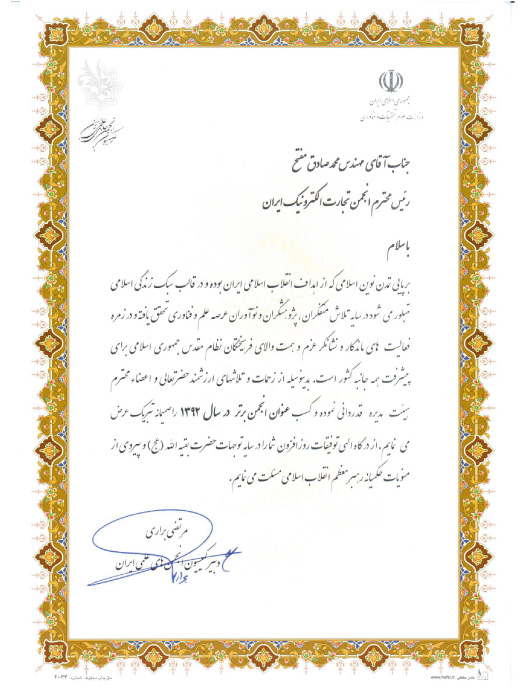 جمهوری اسلامی ایران
وزارت علوم تحقیقات و فناوری
جناب آقای مهندس محمدصادق مفتح
رئیس محترم انجمن تجارت الکترونیک ایران
باسلام
برپایی تمدن نوین اسلامی که از اهداف انقلاب اسلامی ایران بوده و در قالب سبک زندگی اسلامی
متبلور می شود در سایه تلاش متفکران، پژوهشگران و نوآوران عرصه علم و فناوری تحقق یافته و در زمره
فعالیت های ماندگار و نشانگر عزم و همت والای فرهیختگان نظام مقدس جمهوری اسلامی برای
پیشرفت همه جانبه کشور است. بدینوسیله از زحمات و تلاشهای ارزشمند حضرتعالی و اعضاء محترم
هیئت مدیره قدردانی نموده و کسب عنوان انجمن برتر در سال ۱۳۹۲ را صمیمانه تبریک عرض
می نمایم. از درگاه الهی توفیقات روزافزون شما را در سایه توجهات حضرت بقیه الله (عج) و پیروی از
منویات حکیمانه رهبر معظم انقلاب اسلامی مسئلت می نمایم.
مرتضی براری
دبیر کمیسیون انجمن های علمی ایران
www.hafezi.ir
شماره: ۲۰۳۳